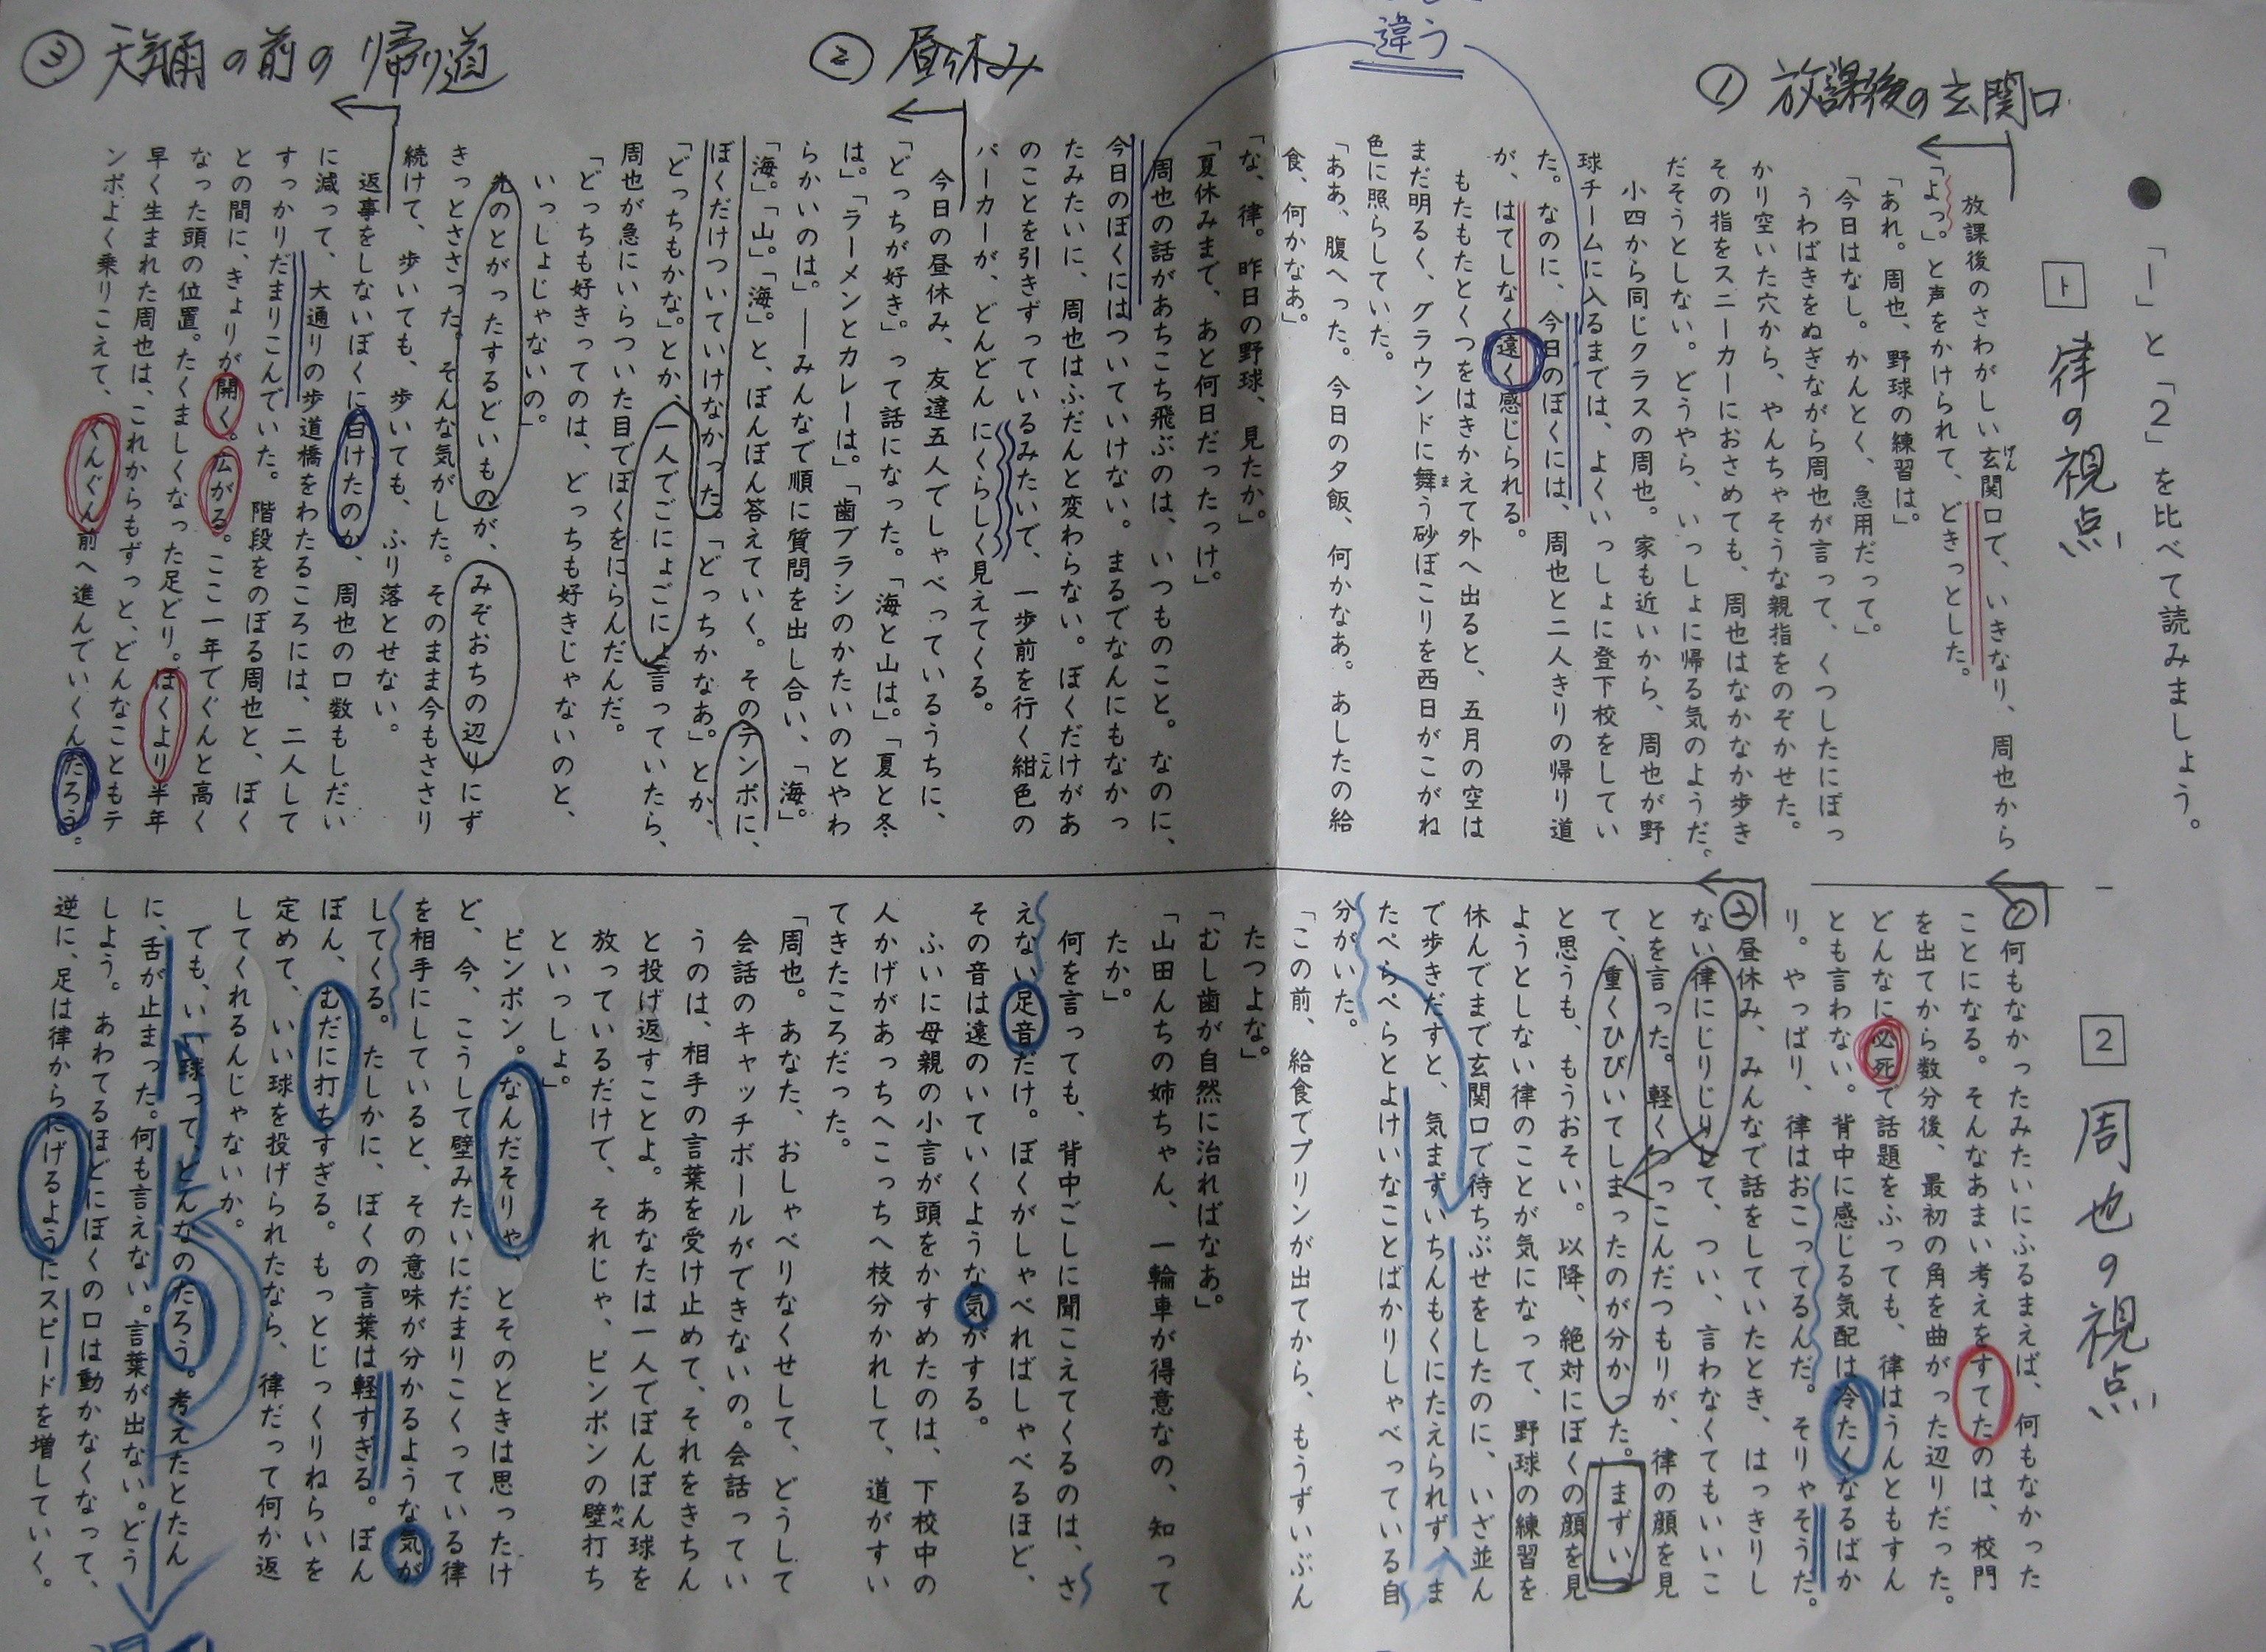 「1」と「2」を比べて読みましょう。
① 放課後の玄関口
② 昼休み
③ 天気雨の前の帰り道
違う
1 律の視点
放課後のさわがしい玄関口で、いきなり、周也から
げん
「よっ。」と声をかけられて、どきっとした。
「あれ。周也、野球の練習は。」
「今日はなし。かんとく、急用だって。」
うわばきをぬぎながら周也が言って、くつしたにぽっ
かり空いた穴から、やんちゃそうな親指をのぞかせた。
その指をスニーカーにおさめても、周也はなかなか歩き
だそうとしない。どうやら、いっしょに帰る気のようだ。
小四から同じクラスの周也。家も近いから、周也が野
球チームに入るまでは、よくいっしょに登下校をしてい
た。なのに、今日のぼくには、周也と二人きりの帰り道
が、はてしなく遠く感じられる。
もたもたとくつをはきかえて外へ出ると、五月の空は
まだ明るく、グラウンドに舞う砂ぼこりを西日がこがね
ま
色に照らしていた。
「ああ、腹へった。今日の夕飯、何かなあ。あしたの給
食、何かなあ。」
「な、律。昨日の野球、見たか。」
「夏休みまで、あと何日だったっけ。」
周也の話があちこち飛ぶのは、いつものこと。なのに、
今日のぼくにはついていけない。まるでなんにもなかっ
たみたいに、周也はふだんと変わらない。ぼくだけがあ
のことを引きずっているみたいで、一歩前を行く紺色の
こん
パーカーが、どんどんにくらしく見えてくる。
今日の昼休み、友達五人でしゃべっているうちに、
「どっちが好き。」って話になった。「海と山は。」「夏と冬
は。」「ラーメンとカレーは。」「歯ブラシのかたいのとやわ
らかいのは。」――みんなで順に質問を出し合い、「海。」
「海。」「山。」「海。」と、ぽんぽん答えていく。そのテンポに、
ぼくだけついていけなかった。「どっちかなあ。」とか、
「どっちもかな。」とか、一人でごにょごにょ言っていたら、
周也が急にいらついた目でぼくをにらんだんだ。
「どっちも好きってのは、どっちも好きじゃないのと、
いっしょじゃないの。」
先のとがったするどいものが、みぞおちの辺りにず
きっとささった。そんな気がした。そのまま今もささり
続けて、歩いても、歩いても、ふり落とせない。
返事をしないぼくに白けたのか、周也の口数もしだい
に減って、大通りの歩道橋をわたるころには、二人して
すっかりだまりこんでいた。階段をのぼる周也と、ぼく
との間に、きょりが開く。広がる。ここ一年でぐんと高く
なった頭の位置。たくましくなった足どり。ぼくより半年
早く生まれた周也は、これからもずっと、どんなこともテ
ンポよく乗りこえて、ぐんぐん前へ進んでいくんだろう。
2 周也の視点
①
何もなかったみたいにふるまえば、何もなかった
ことになる。そんなあまい考えをすてたのは、校門
を出てから数分後、最初の角を曲がった辺りだった。
どんなに必死で話題をふっても、律はうんともすん
とも言わない。背中に感じる気配は冷たくなるばか
り。やっぱり、律はおこってるんだ。そりゃそうだ。
②
昼休み、みんなで話をしていたとき、はっきりし
ない律にじりじりして、つい、言わなくてもいいこ
とを言った。軽くつっこんだつもりが、律の顔を見
て、重くひびいてしまったのが分かった。まずい、
と思うも、もうおそい。以降、絶対にぼくの顔を見
ようとしない律のことが気になって、野球の練習を
休んでまで玄関口で待ちぶせをしたのに、いざ並ん
で歩きだすと、気まずいちんもくにたえられず、ま
たぺらぺらとよけいなことばかりしゃべっている自
分がいた。
「この前、給食でプリンが出てから、もうずいぶん
たつよな。」
「むし歯が自然に治ればなあ。」
「山田んちの姉ちゃん、一輪車が得意なの、知って
たか。」
何を言っても、背中ごしに聞こえてくるのは、さ
えない足音だけ。ぼくがしゃべればしゃべるほど、
その音は遠のいていくような気がする。
ふいに母親の小言が頭をかすめたのは、下校中の
人かげがあっちへこっちへ枝分かれして、道がすい
てきたころだった。
「周也。あなた、おしゃべりなくせして、どうして
会話のキャッチボールができないの。会話ってい
うのは、相手の言葉を受け止めて、それをきちん
と投げ返すことよ。あなたは一人でぽんぽん球を
放っているだけで、それじゃ、ピンポンの壁打ち
かべ
といっしょ。」
ピンポン。なんだそりゃ、とそのときは思ったけ
ど、今、こうして壁みたいにだまりこくっている律
を相手にしていると、その意味が分かるような気が
してくる。たしかに、ぼくの言葉は軽すぎる。ぽん
ぽん、むだに打ちすぎる。もっとじっくりねらいを
定めて、いい球を投げられたなら、律だって何か返
してくれるんじゃないか。
でも、いい球って、どんなのだろう。考えたとたん
に、舌が止まった。何も言えない。言葉が出ない。どう
しよう。あわてるほどにぼくの口は動かなくなって、
逆に、足は律からにげるようにスピードを増していく。